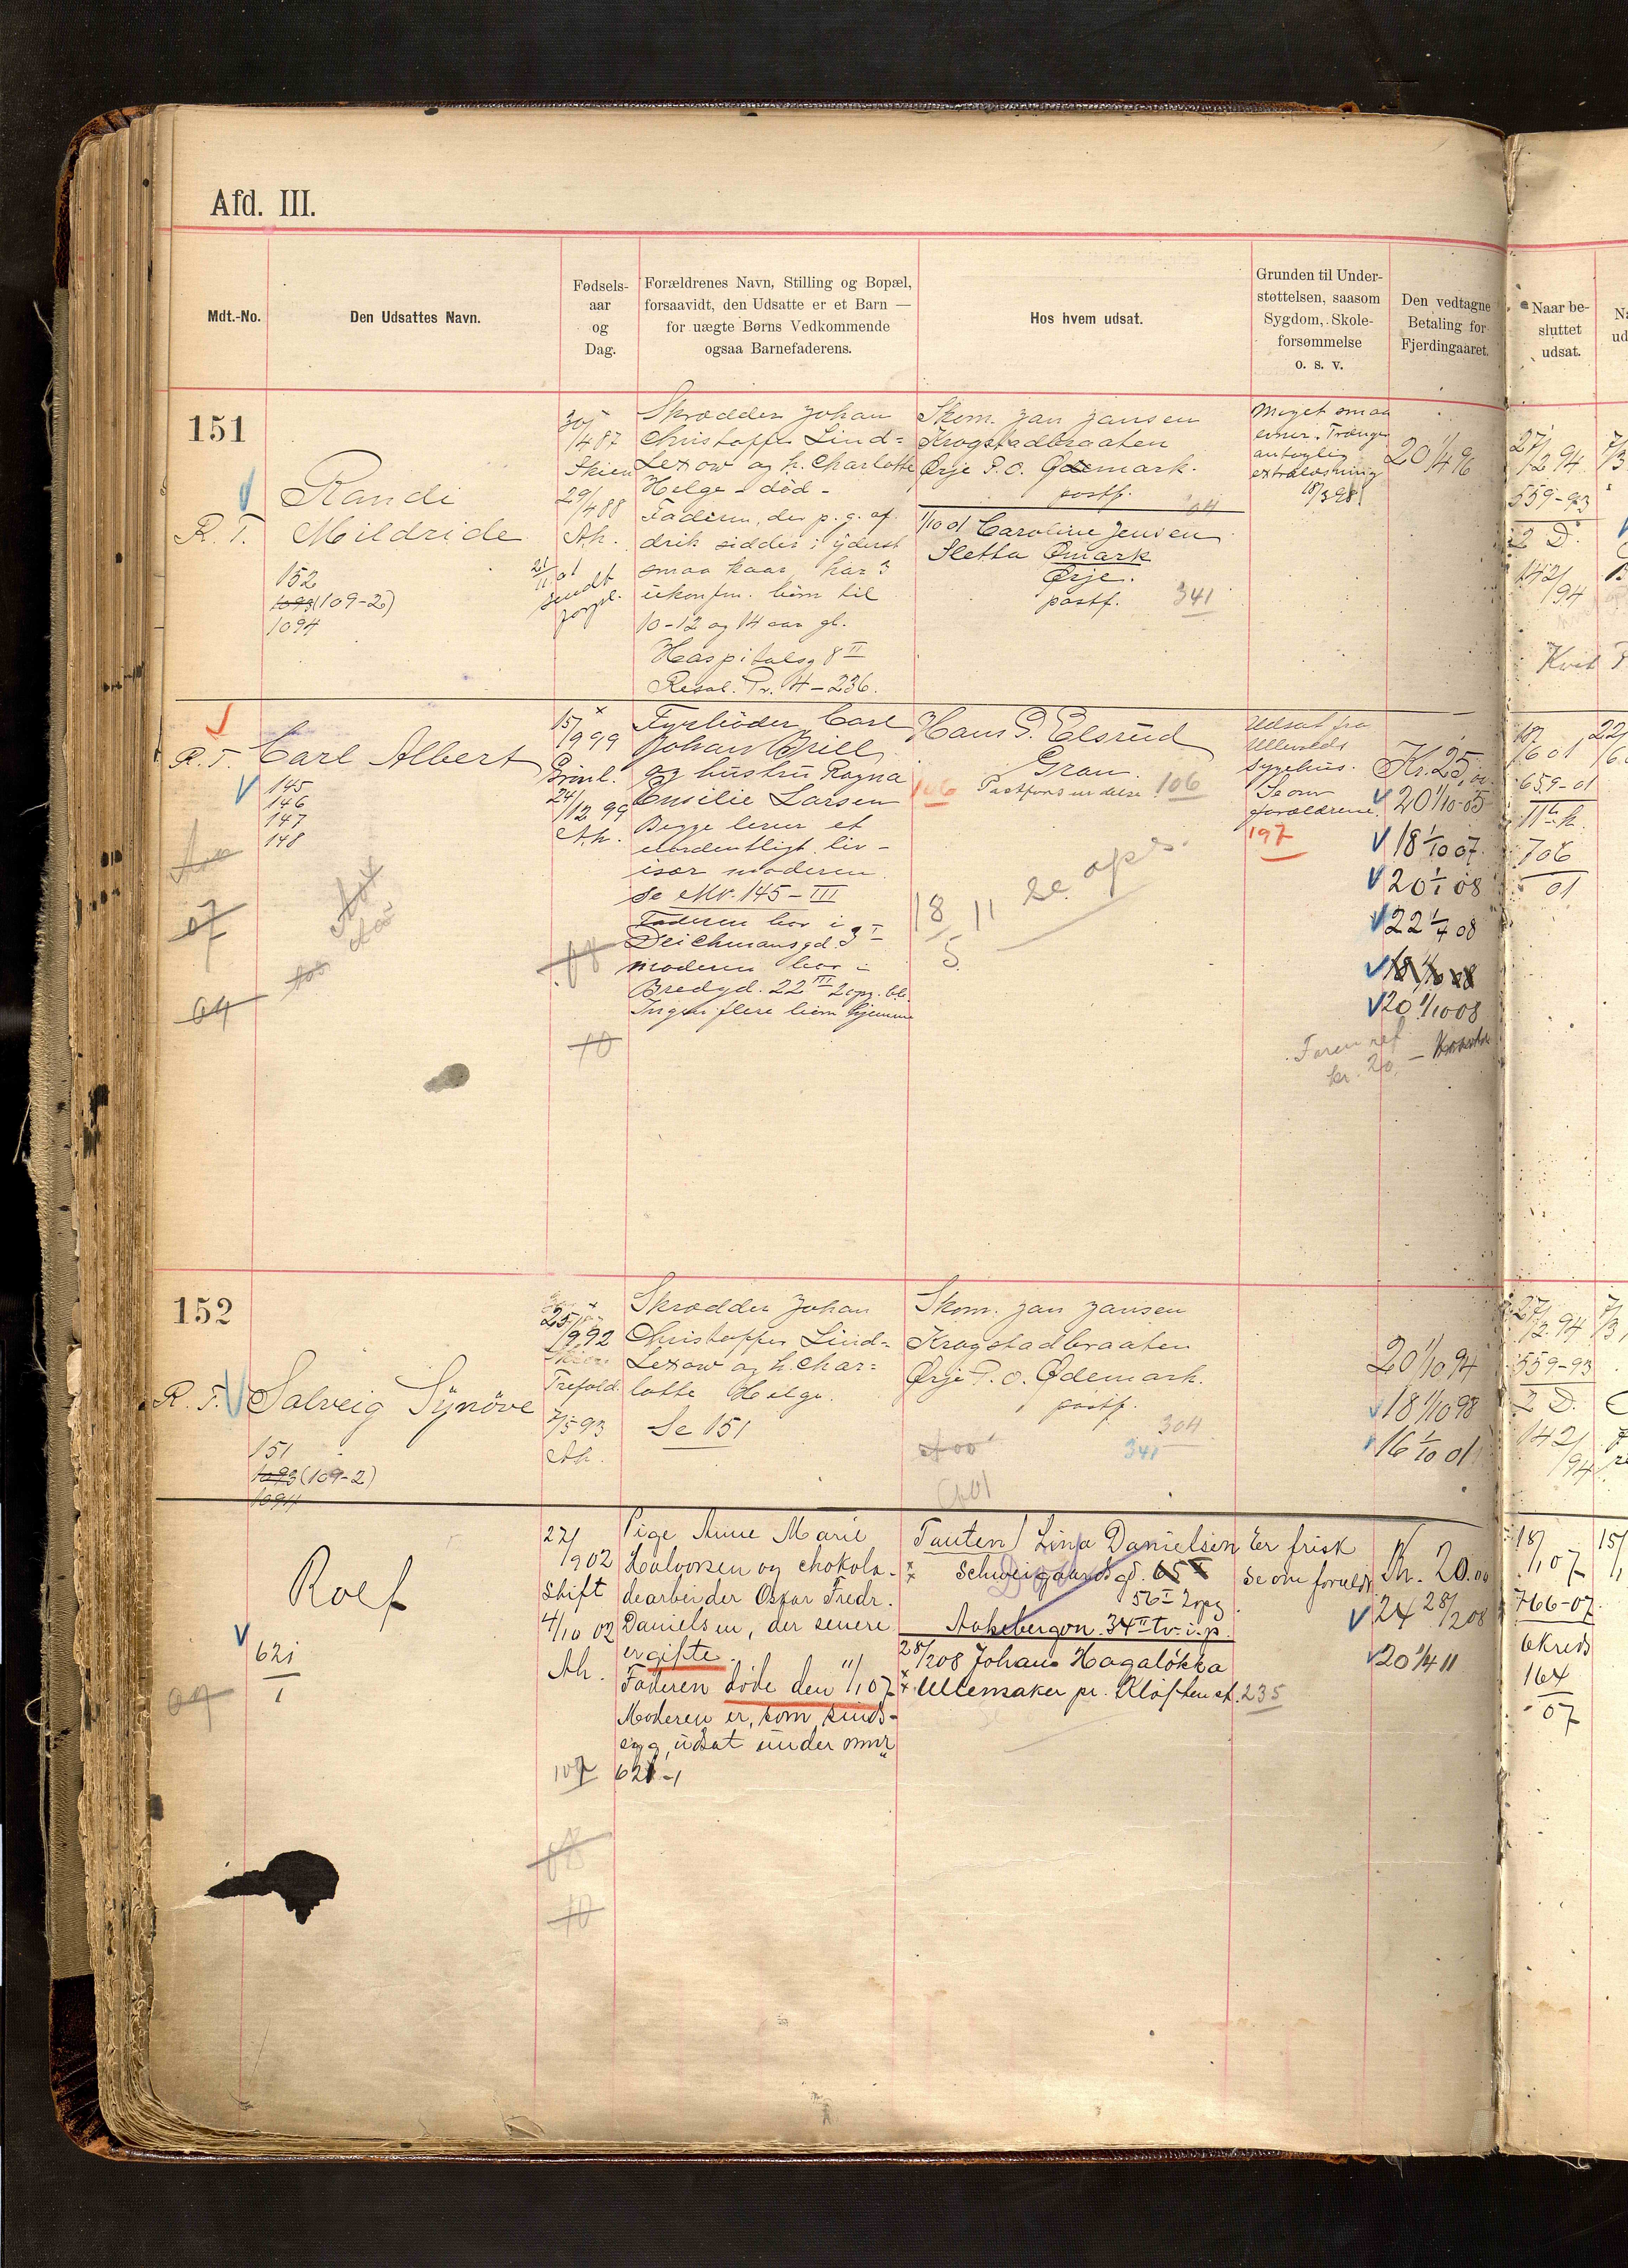 Afd. III.
Mdt.-No.
Den Udsattes Navn.
Fødsels-
aar
og
Dag.
Forældrenes Navn, Stilling og Bopæl,
forsaavidt, den Udsatte er et Barn —
for uægte Børns Vedkommende
ogsaa Barnefaderens.
Hos hvem udsat.
Grunden til Under-
støttelsen, saasom
Sygdom, Skole-
forsømmelse
o. s. v.
Den vedtagne
Betaling for
Fjerdingaaret.
Naar be-
sluttet
udsat.
151
R. T.
Randi
Mildride
152
1093 (109-2)
1094
30/4 87
Skien
29/4 88
Ah.
21/11 01
sendt
Skrædder Johan
Christoffer Lind=
Lexow og h. Charlotte
Helge - død -
Faderen, der p. g. af
drik sidder i yderst
smaa kaar, har 3
ukonfm. børn til
10-12 og 14 aar gl.
Hospitalsg 8 II
Resol. Pr. 4-236.
Skom. Jan Jansen
Krogstadbraaten
Ørje P.O. Ødemark.
postf.
304
1/10 01 Caroline Jensen
Sletta Ømark
Ørje.
postf. 341
Meget smaa
evner. Trænger
antagelig
extralæsning
18/3 98
20 1/4 96
27/12 94
559-93
2 D.
142/94
Kvit
R. T.
Carl Albert
145
146
147
148
07
04
15/9 99
Grønl.
24/12 99
Ah.
08
10
Fyrbøder Carl
Johan Brill
og hustru Ragna
Emilie Larsen
Begge lever et
uordentligt liv -
især moderen.
Se Mr. 145 - III
Faderen bor i
Deichmansgd. 3 I
moderen bor i
Bredgd. 22 III 2 opg. bl.
Ingen flere børn hjemme
Hans P. Elsrud
Gran.
106 Postforsendelse 106
18/5 11 se ops.
Udsat fra
Ullevolds
sygehus.
Se om
forældrene.
197
Kr. 25,00
20 1/10-05
18 1/10 07
20 1/1 08
22 1/4 08
18 1/10 08
20 1/10 08
Faren ref
kr. 20. -
18/6 01
659-01
11te k.
706
01
152
R. T.
Solveig Synöve
151
1093 (109-2)
1094
25/9 92
Skien
Trefold.
7/5 93
Ah.
Skrædder Johan
Christoffer Lind=
Lexow og h. Char=
lotte Helge.
Se 151
Skom. Jan Jansen
Krogstadbraaten
Ørje P.O. Ødemark.
postf.
304
341
20 1/10 94
18 1/10 98
16 1/10 01
27/12 94
559-93
2 D.
142/94
Rolf
621
1
09
27/ 902
Skift
4/10 02
Ah.
107
08
10
Pige Anne Marie
Halvorsen og chokola-
dearbeider Oskar Fredr.
Danielsen, der senere
er gifte.
Faderen døde den 11/1 07
Moderen er, som sinds-
syg, udsat under omr
621-1
Tanten/ Lina Danielsen
Schweigaardsgd. 65 I
56 I 2 opg
Aakebergvn. 34 II tv. i. p.
28/2 08 Johans Hagaløkka
Ullensaker pr. Kløften st. 235
Er frisk
Se om foreldr
Kr. 20.00
24 28/2 08
20 1/4 11
18/1 07
766-07
6 kreds
164
07